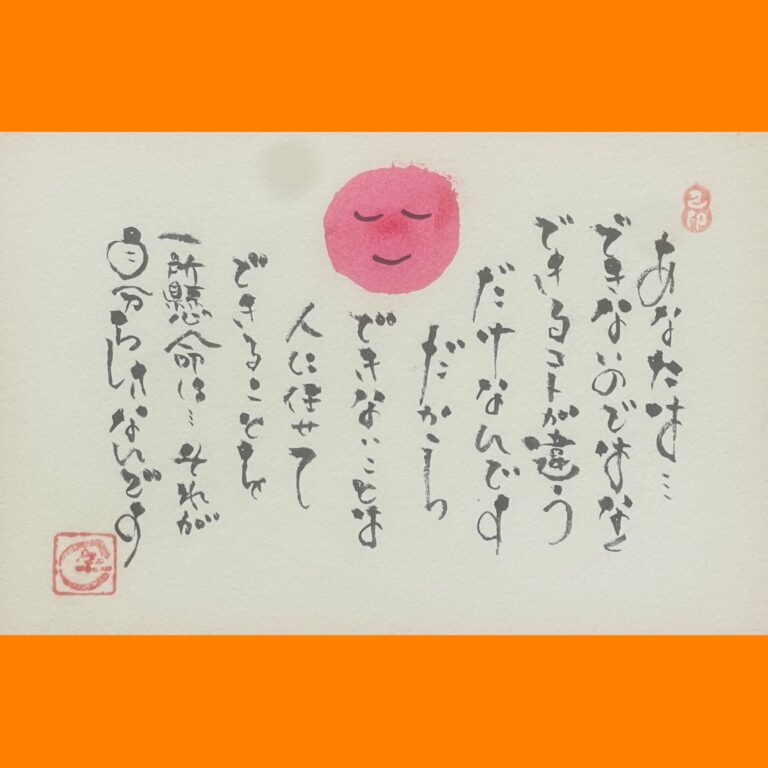 あなたは…
できないのではなく
できるコトが違う
だけなんです
だから
できないことは
人に任せて
できることを
一所懸命に… それが
自分らしさなんです